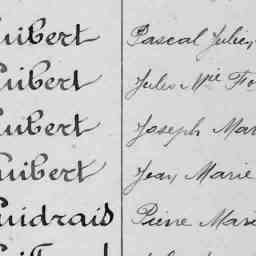 uibert Pascal Julien
uibert Jules Mie Fo
uibert Joseph Mar
uibert Jean Marie
uidrais Pierre Mari